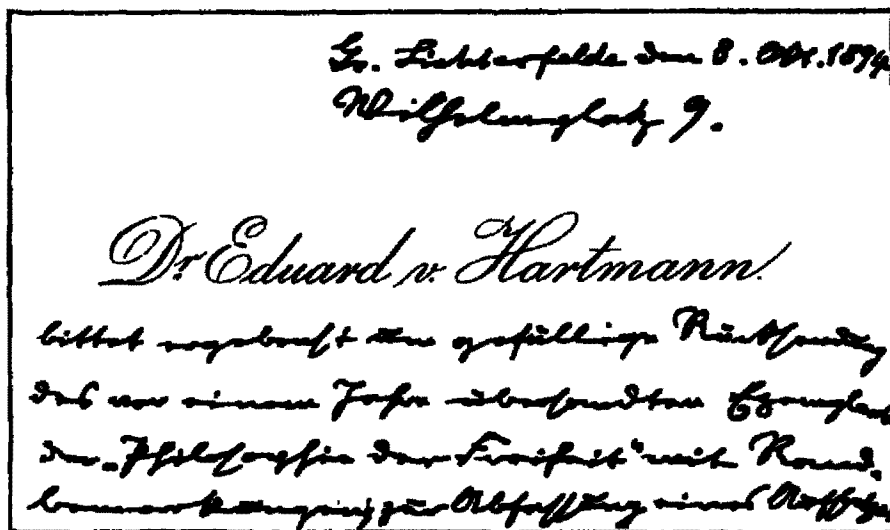 Gr. Lichterfelde den 8. Okt. 1894
Wilhelmplatz 9.
Dr Eduard v. Hartmann.
bittet ergebenst um gefällige Rücksendung
des vor einem Jahre übersandten Exemplars
der „Philosophie der Freiheit" mit Rand-
bemerkungen, zur Abfassung eines Aufsatzes